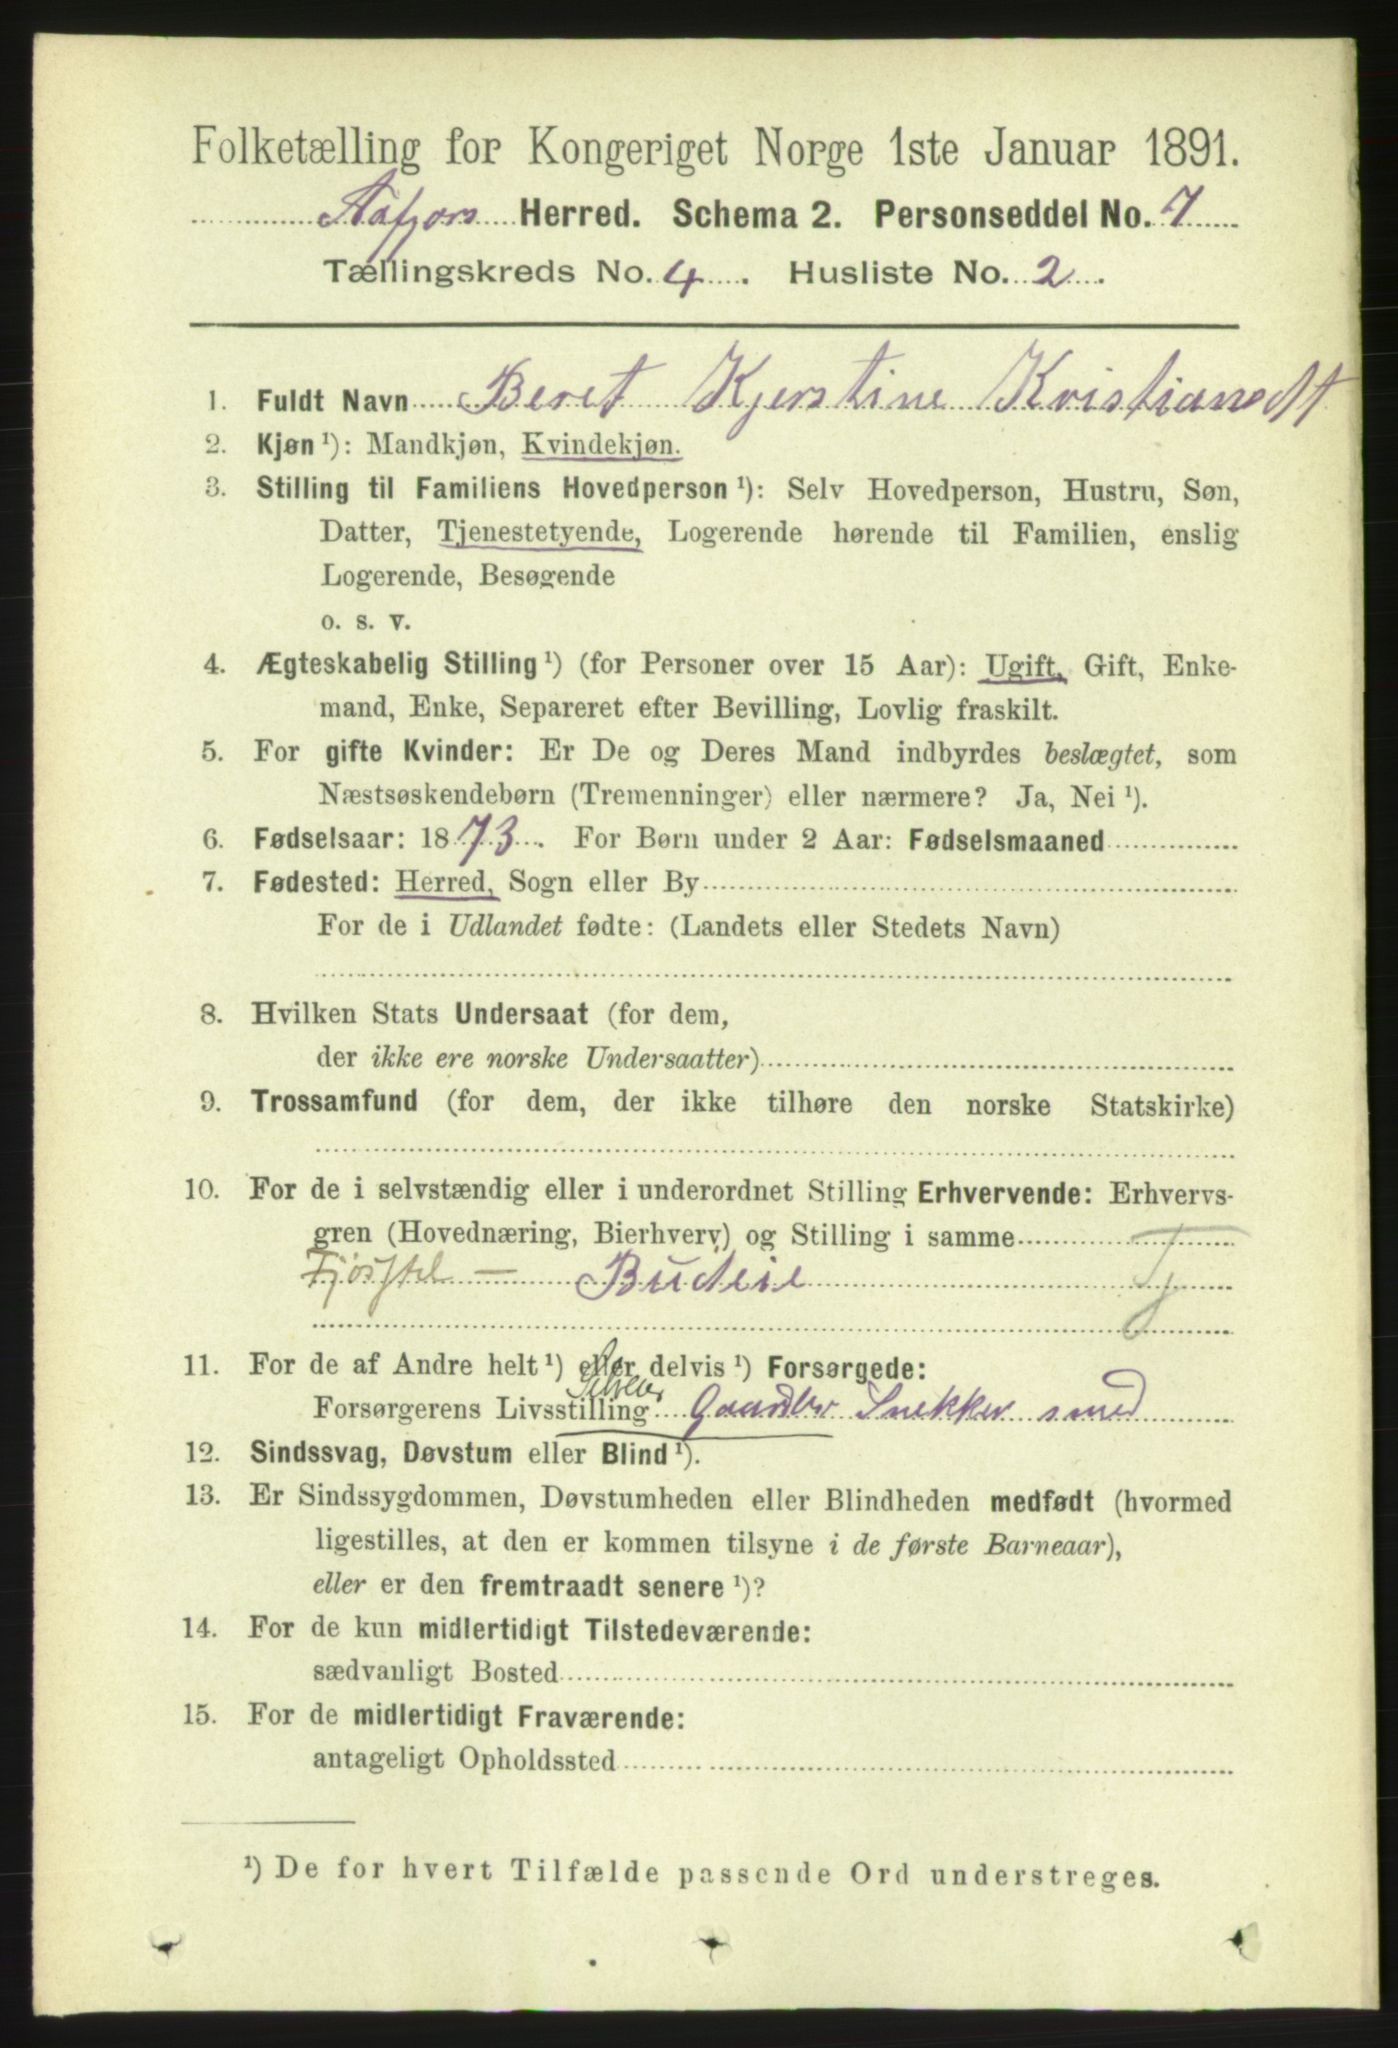 Folketælling for Kongeriget Norge 1ste Januar 1891.
Aafjors Herred. Schema 2. Personseddel No. 7
Tællingskreds No. 4. Husliste No. 2.
1. Fuldt Navn Beret Kjerstine Kristiansdt
2. Kjøn ¹): Mandkjøn, Kvindekjøn.
3. Stilling til Familiens Hovedperson ¹): Selv Hovedperson, Hustru, Søn,
Datter, Tjenestetyende, Logerende hørende til Familien, enslig
Logerende, Besøgende
o. s. v.
4. Ægteskabelig Stilling ¹) (for Personer over 15 Aar): Ugift, Gift, Enke-
mand, Enke, Separeret efter Bevilling, Lovlig fraskilt.
5. For gifte Kvinder: Er De og Deres Mand indbyrdes beslægtet, som
Næstsøskendebørn (Tremenninger) eller nærmere? Ja, Nei ¹).
6. Fødselsaar: 1873. For Børn under 2 Aar: Fødselsmaaned
7. Fødested: Herred, Sogn eller By
For de i Udlandet fødte: (Landets eller Stedets Navn)
8. Hvilken Stats Undersaat (for dem,
der ikke ere norske Undersaatter)
9. Trossamfund (for dem, der ikke tilhøre den norske Statskirke)
10. For de i selvstændig eller i underordnet Stilling Erhvervende: Erhvervs-
gren (Hovednæring, Bierhverv) og Stilling i samme
Fjøsstel — Budeie Tj
11. For de af Andre helt ¹) eller delvis ¹) Forsørgede:
Selveier
Forsørgerens Livsstilling Gaardbr Snekker smed
12. Sindssvag, Døvstum eller Blind ¹).
13. Er Sindssygdommen, Døvstumheden eller Blindheden medfødt (hvormed
ligestilles, at den er kommen tilsyne i de første Barneaar),
eller er den fremtraadt senere ¹)?
14. For de kun midlertidigt Tilstedeværende:
sædvanligt Bosted
15. For de midlertidigt Fraværende:
antageligt Opholdssted
¹) De for hvert Tilfælde passende Ord understreges.